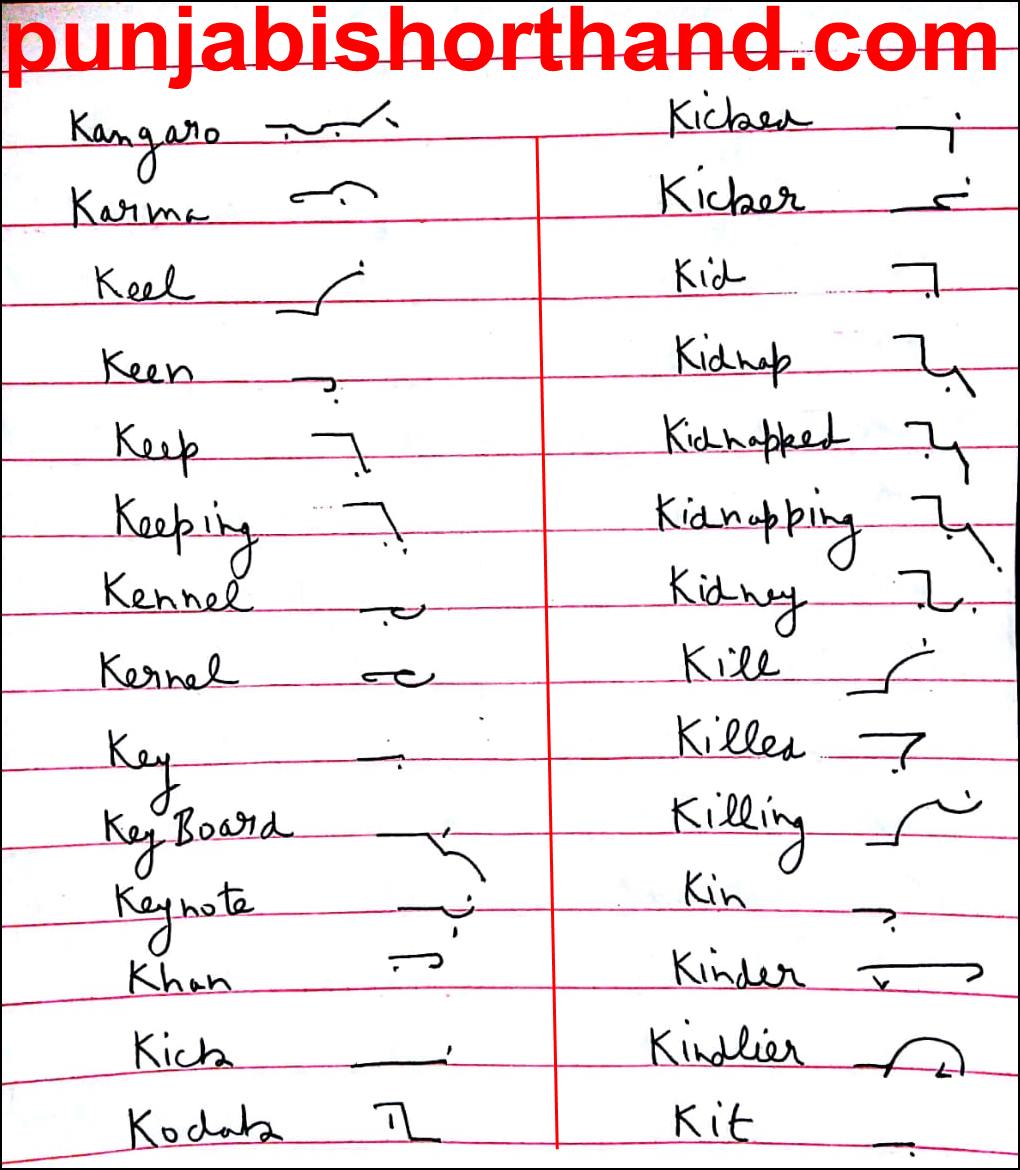 punjabishorthand.com
Kangaro
Karma
Keel
Keen
Keep
Keeping
Kennel
Kernel
Key
Key Board
Keynote
Khan
Kick
Kodak
Kicked
Kicker
Kid
Kidnap
Kidnapped
Kidnapping
Kidney
Kill
Killed
Killing
Kin
Kinder
Kindlier
Kit